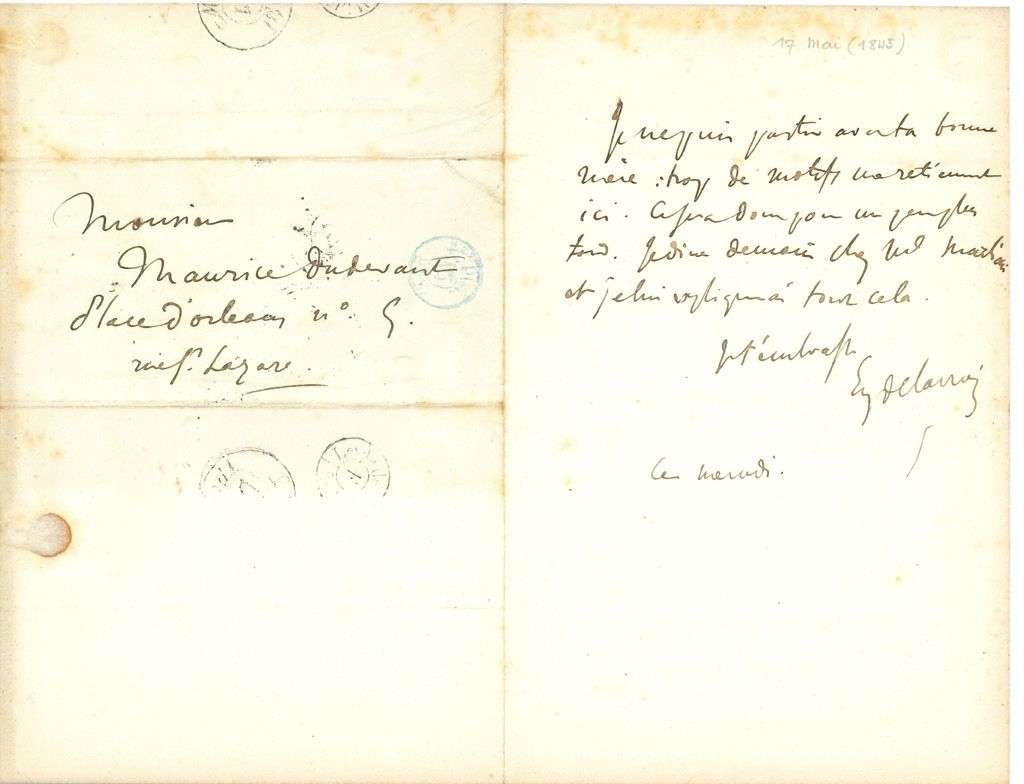 Monsieur
Maurice Dudevant
Place d'orleans n° 5.
rue St Lazare.
17 Mai (1843)
Je ne puis partir avec ta bonne
mère : trop de motifs me retiennent
ici. Ce sera donc pour un peu plus
tard. Je dine demain chez Md Marliani
et je lui expliquerai tout cela.
Je t'embrasse
Eug Delacroix
Ce mercredi.